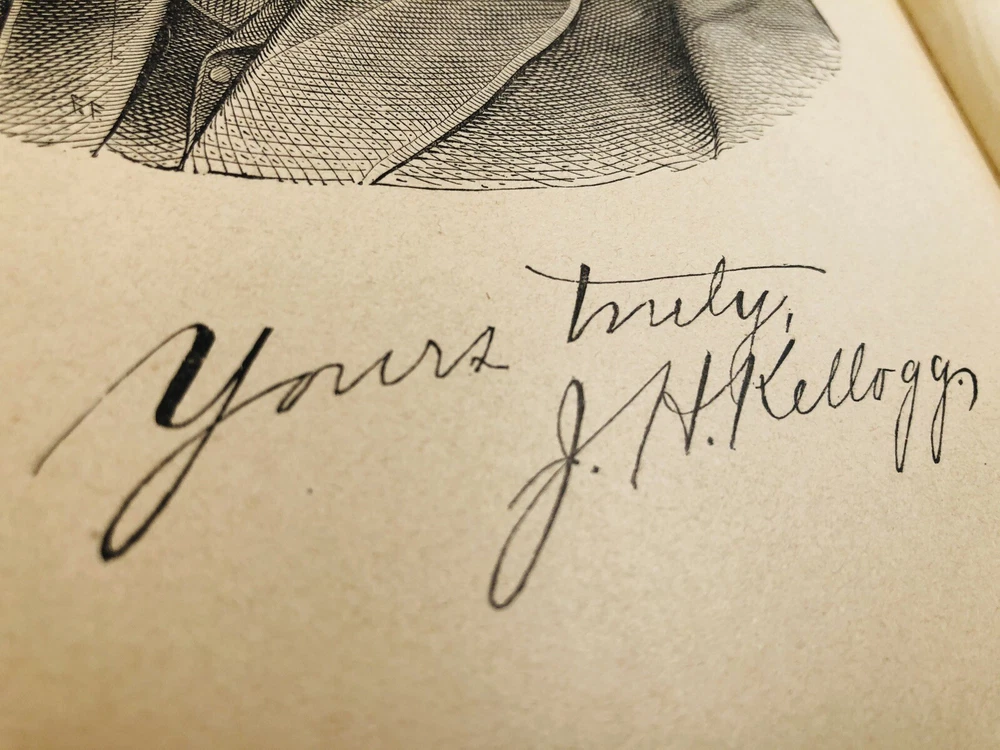 Yours truly,
J. H. Kellogg.